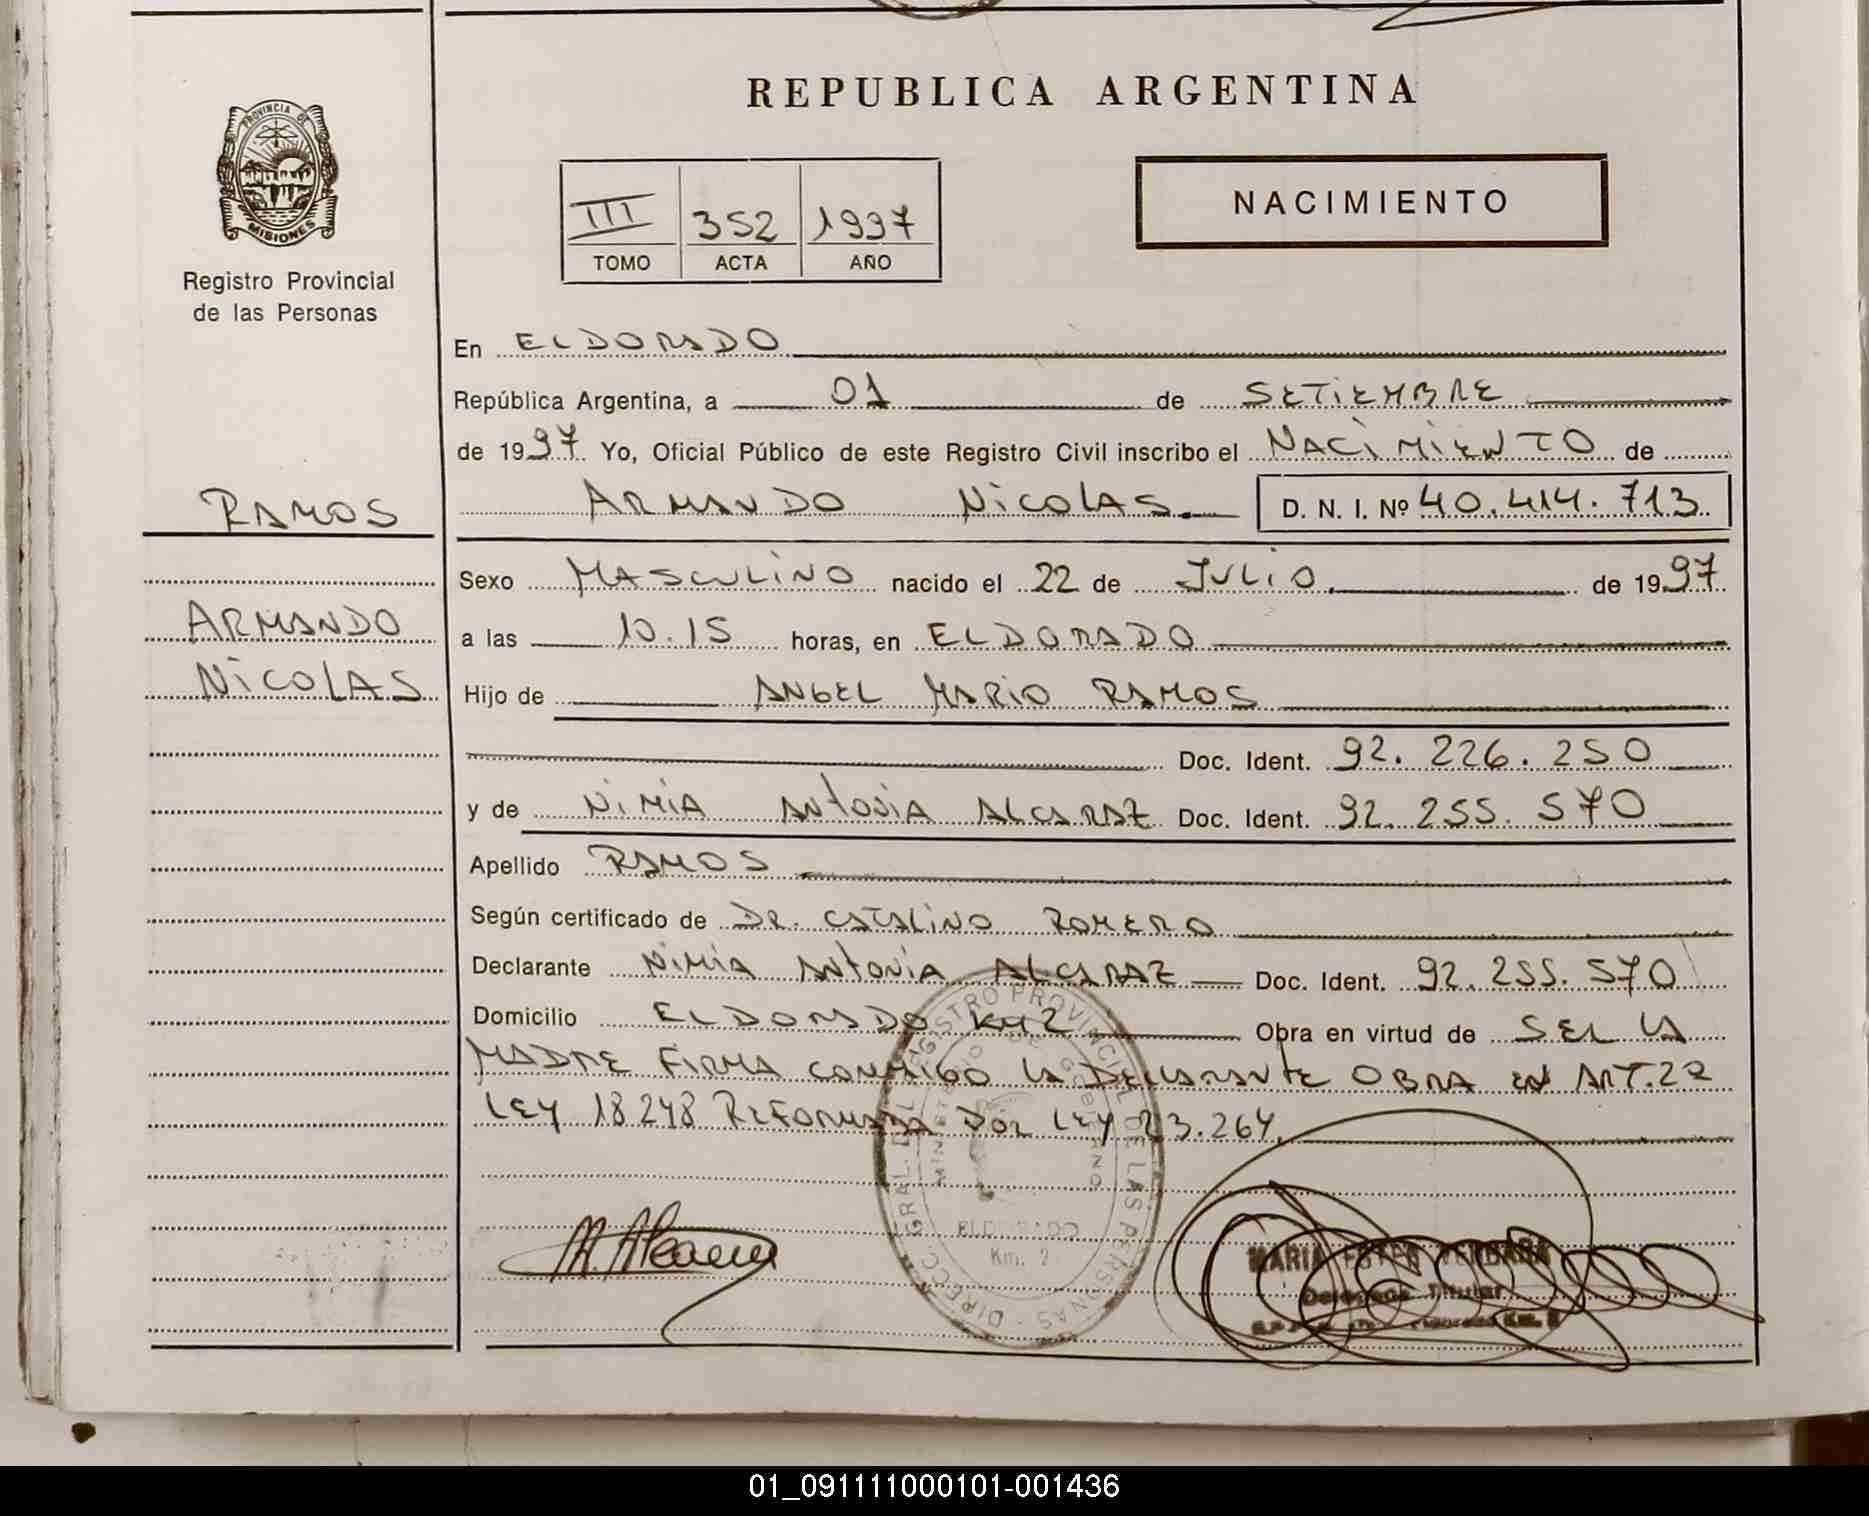 PROVINCIA DE
MISIONES
Registro Provincial
de las Personas
REPUBLICA ARGENTINA
III 352 1997
TOMO ACTA AÑO
NACIMIENTO
En ELDORADO
República Argentina, a 01 de SETIEMBRE
de 1997 Yo, Oficial Público de este Registro Civil inscribo el NACIMIENTO de
RAMOS
ARMANDO NICOLAS D. N. I. Nº 40.414.713
Sexo MASCULINO nacido el 22 de JULIO de 1997
ARMANDO
a las 10.15 horas, en ELDORADO
NICOLAS
Hijo de ANGEL MARIO RAMOS
Doc. Ident. 92.226.250
y de NIMIA ANTONIA ALCARAZ Doc. Ident. 92.255.570
Apellido RAMOS
Según certificado de DR. CATALINO ROMERO
Declarante NIMIA ANTONIA ALCARAZ Doc. Ident. 92.255.570
Domicilio ELDORADO KM 2 Obra en virtud de SER LA
MADRE FIRMA CONMIGO LA DECLARANTE OBRA EN ART. 2º
LEY 18248 REFORMADA POR LEY 23.264.
DIRECC. GRAL. DEL REGISTRO PROVINCIAL DE LAS PERSONAS
MINISTERIO DE GOBIERNO
ELDORADO
Km. 2
MARIA ESTER
Delegada Titular
Eldorado Km. 2
01_091111000101-001436